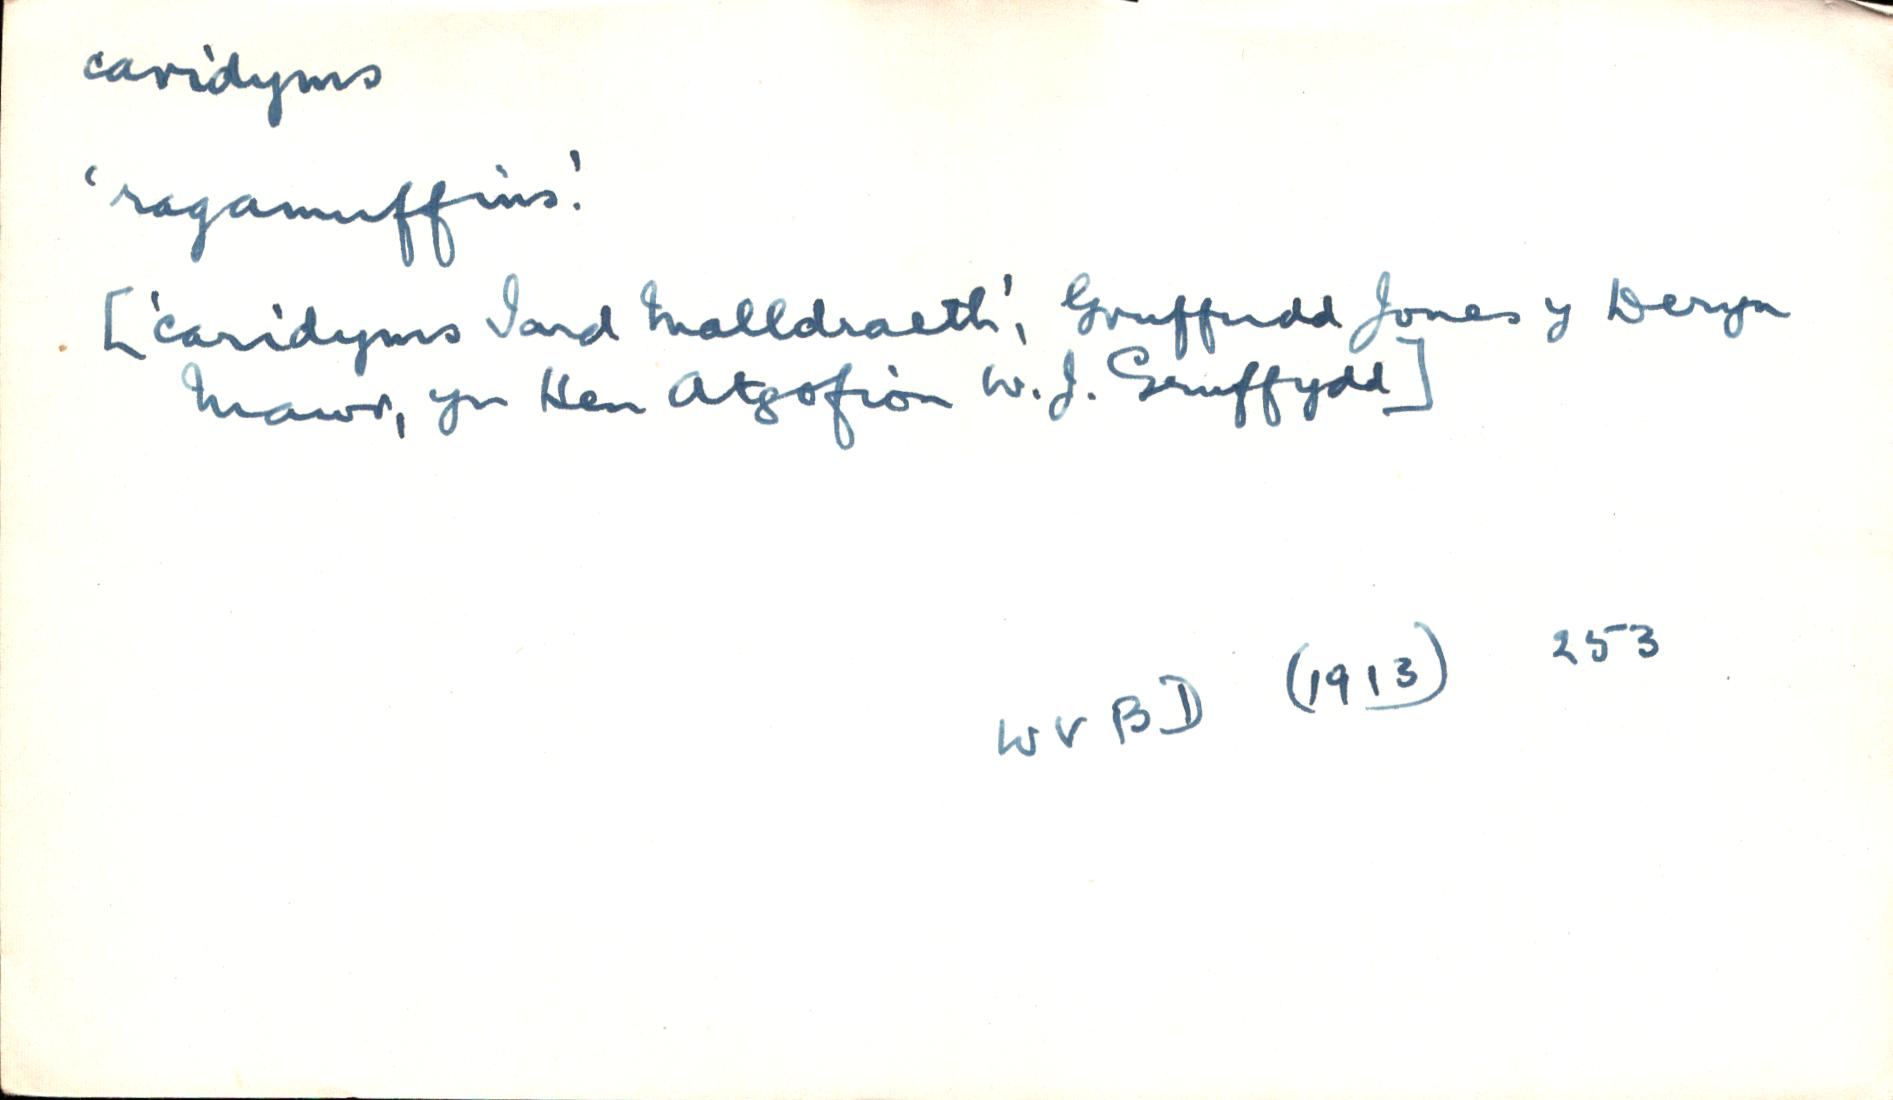 caridyms
'ragamuffins'.
['caridyms Iard Malldraeth', Gruffudd Jones y Deryn
Mawr, yn Hen Atgofion W. J. Gruffydd]
WVBD (1913) 253